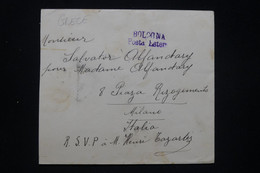 GRECE
BOLOGNA
Posta Estera
Monsieur
Salvator Alfandary
pour Madame Alfandary
8 Piazza Risorgimento
Milano
Italia
R.S.V.P à M. Henri